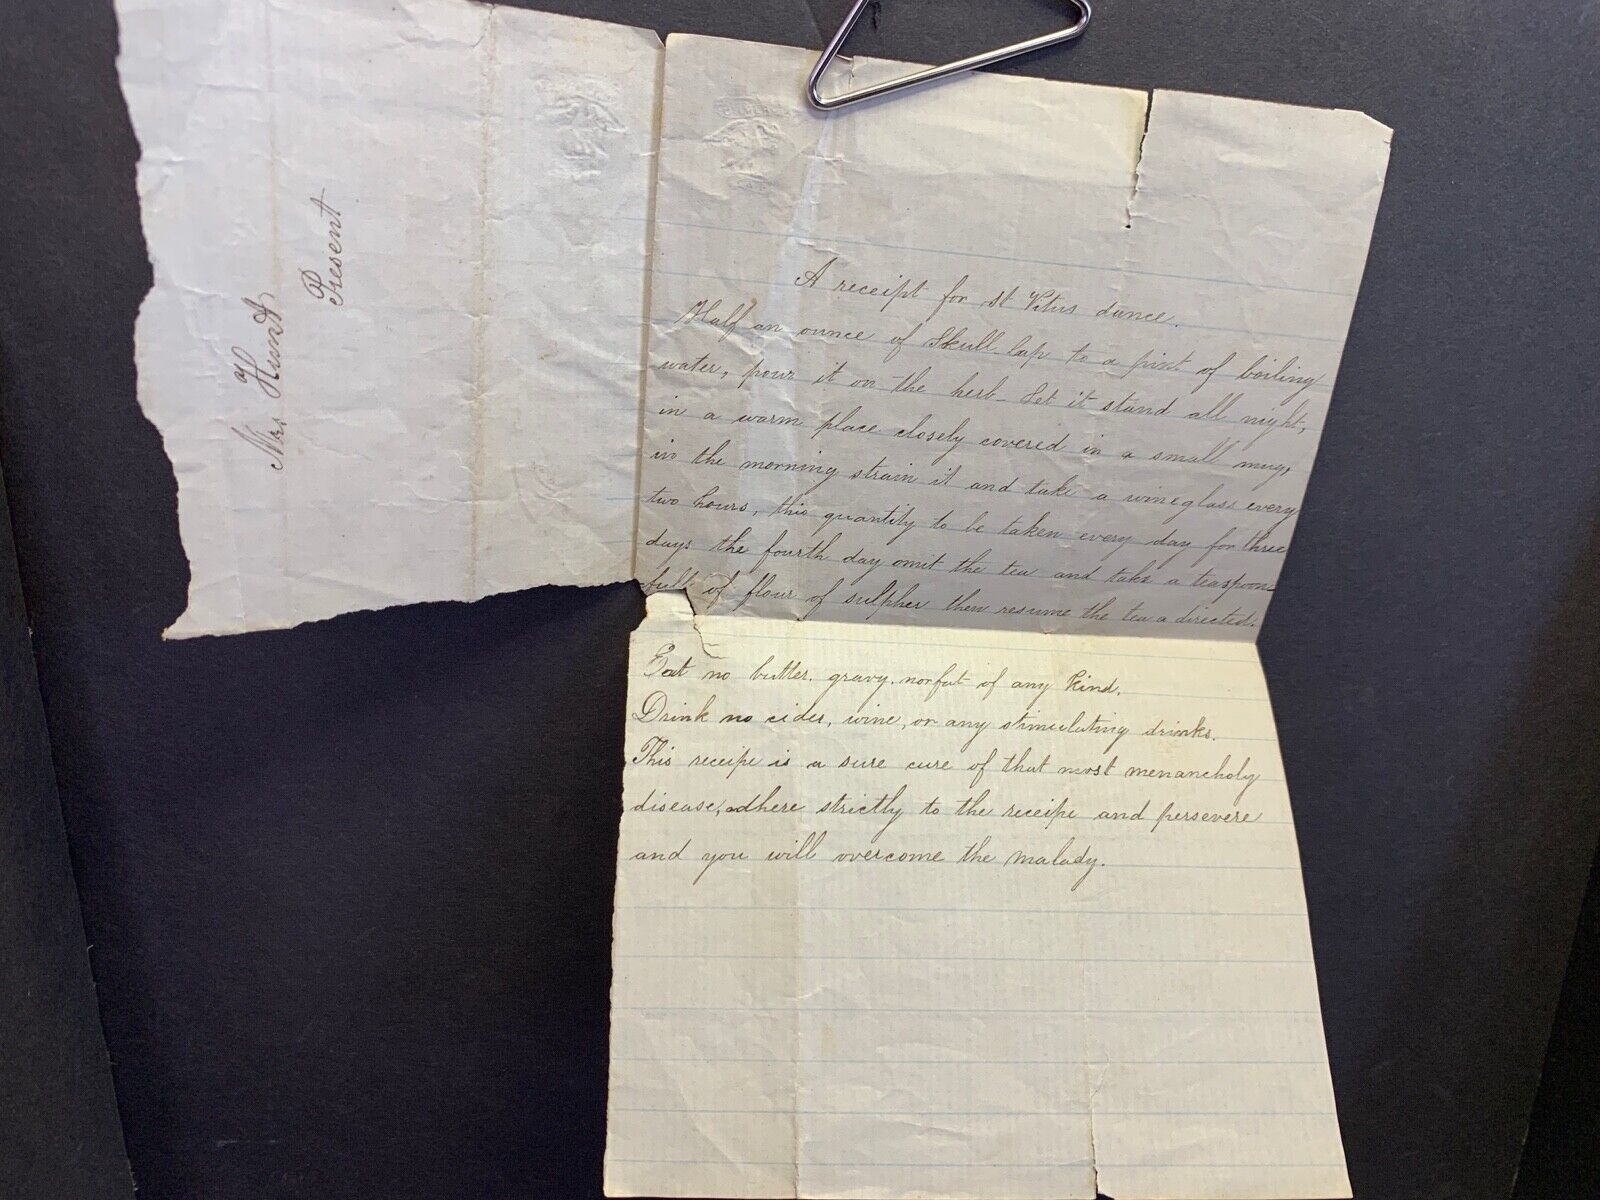 Mrs Hunt
Present
A receipt for St Vitus dance.
Half an ounce of Skull-cap to a pint of boiling
water, pour it on the herb - let it stand all night,
in a warm place closely covered in a small mug,
in the morning strain it and take a wineglass every
two hours, this quantity to be taken every day for three
days the fourth day omit the tea and take a teaspoon=
full of flour of sulpher then resume the tea a directed.
Eat no butter, gravy, nor fat of any kind.
Drink no cider, wine, or any stimulating drinks.
This receipe is a sure cure of that most menancholy
disease, adhere strictly to the receipe and persevere
and you will overcome the malady.